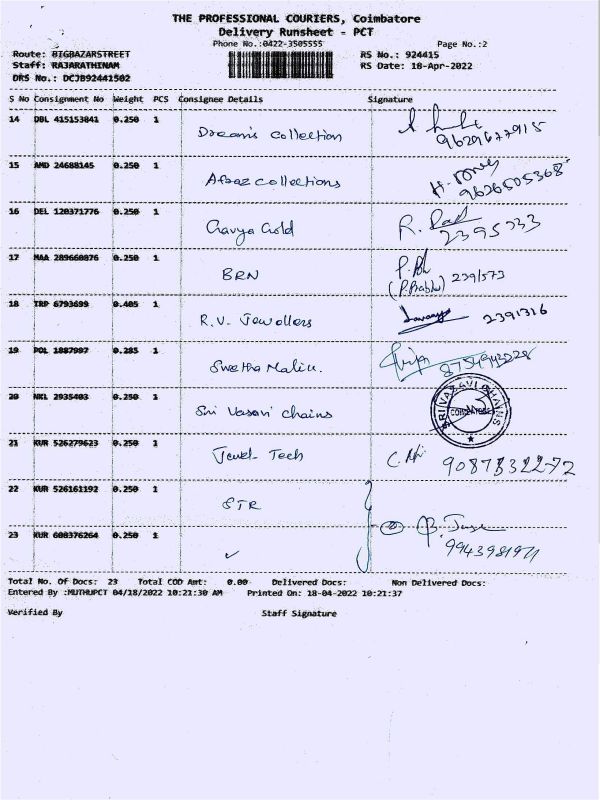 THE PROFESSIONAL COURIERS, Coimbatore
Delivery Runsheet - PCT
Phone No.:0422-3505555 Page No.:2
Route: BIGBAZARSTREET RS No.: 924415
Staff: RAJARATHINAM RS Date: 18-Apr-2022
DRS No.: DCJB92441502
S No Consignment No Weight PCS Consignee Details Signature
14 DBL 415153841 0.250 1 Dreams Collection 9629677915
15 AMD 24688145 0.250 1 Afraz collections 9626505368
16 DEL 120371776 0.250 1 Gavya Gold R. 2395233
17 MAA 289660876 0.250 1 BRN (P.Prabhu) 2391573
18 TRP 6793699 0.405 1 R.V. Jewellers 2391316
19 POL 1887997 0.285 1 Swetha Malin. 8754943228
20 NKL 2935403 0.250 1 Sri Vasavi Chains SRI VAZAVI CHAINS COIMBATORE
21 KUR 526279623 0.250 1 Jewel Tech 9087832272
22 KUR 526161192 0.250 1 STR
23 KUR 608376264 0.250 1 9943981971
Total No. Of Docs: 23 Total COD Amt: 0.00 Delivered Docs: Non Delivered Docs:
Entered By :MUTHUPCT 04/18/2022 10:21:30 AM Printed On: 18-04-2022 10:21:37
Verified By Staff Signature